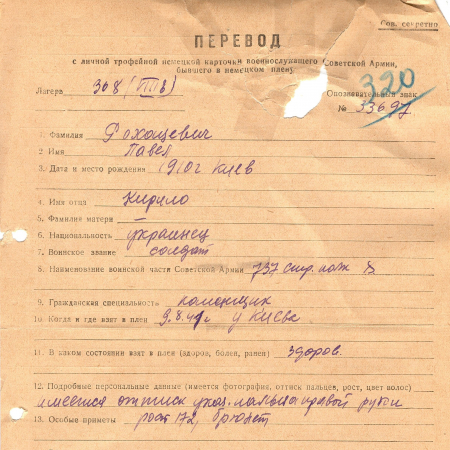 Сов. секретно
ПЕРЕВОД
с личной трофейной немецкой карточки военнослужащего Советской Армии,
бывшего в немецком плену
320
Лагерь 308 (VIII в)
Опознавательный знак
№ 33697
1. Фамилия Рохацевич
2 Имя Павел
3. Дата и место рождения 1910г Киев
4. Имя отца Кирило
5. Фамилия матери —
6. Национальность украинец
7. Воинское звание солдат
8. Наименование воинской части Советской Армии 737 стр. полк
9. Гражданская специальность каменщик
10. Когда и где взят в плен 9.8.41г у Киева
11. В каком состоянии взят в плен (здоров, болен, ранен) здоров.
12. Подробные персональные данные (имеется фотография, оттиск пальцев, рост, цвет волос)
имеется оттиск указ. пальца правой руки
13. Особые приметы рост 172, брюнет